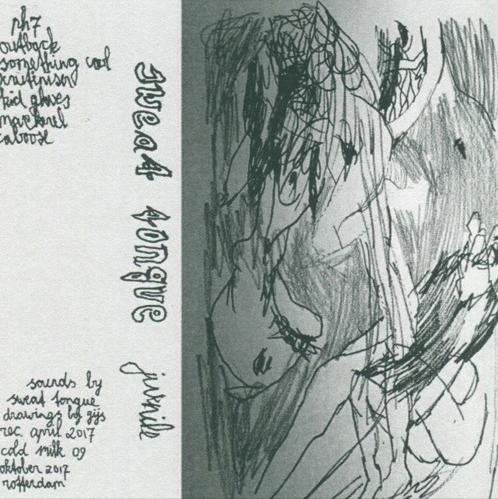 ph7
outback
something cool
scrutiniser
kid gloves
mackerel
caboose
sweat tongue
juvenile
sounds by
sweat tongue
drawings by gijs
rec. april 2017
cold milk 09
oktober 2017
rotterdam